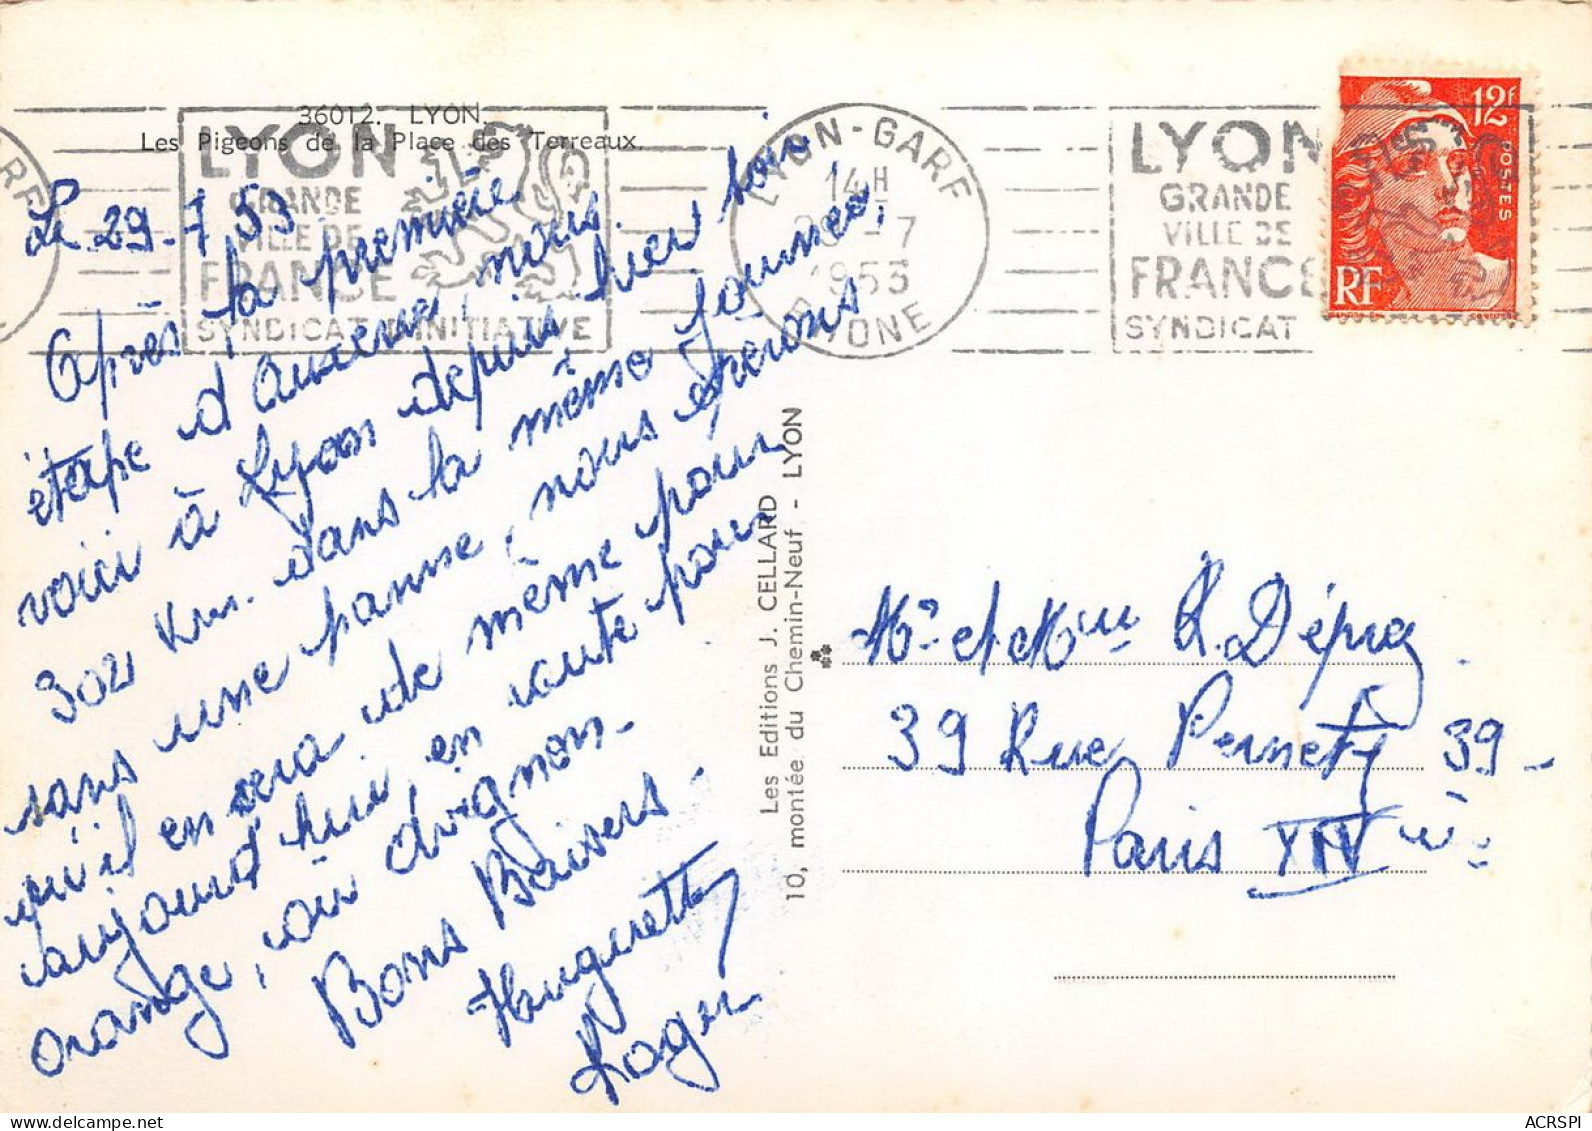 36012. LYON.
Les Pigeons de la Place des Terreaux
LYON
GRANDE
VILLE DE
FRANCE
SYNDICAT D'INITIATIVE
LYON-GARE
14H
29-7
1953
RHONE
LYON
GRANDE
VILLE DE
FRANCE
SYNDICAT
12f
POSTES
RF
Le 29-7 53
Après la première
étape d'Auxerre, nous
voici à Lyon depuis hier soir
302 Km. dans la même journée,
sans une panne, nous espérons
qu'il en sera de même pour
aujourd'hui en route pour
Orange, ou Avignon.
Bons Baisers.
Huguette
Roger
Les Editions J. CELLARD
10, montée du Chemin-Neuf - LYON
Mr et Mme R.
39 Rue Pernety 39-
Paris XIV è:
ACRSPI